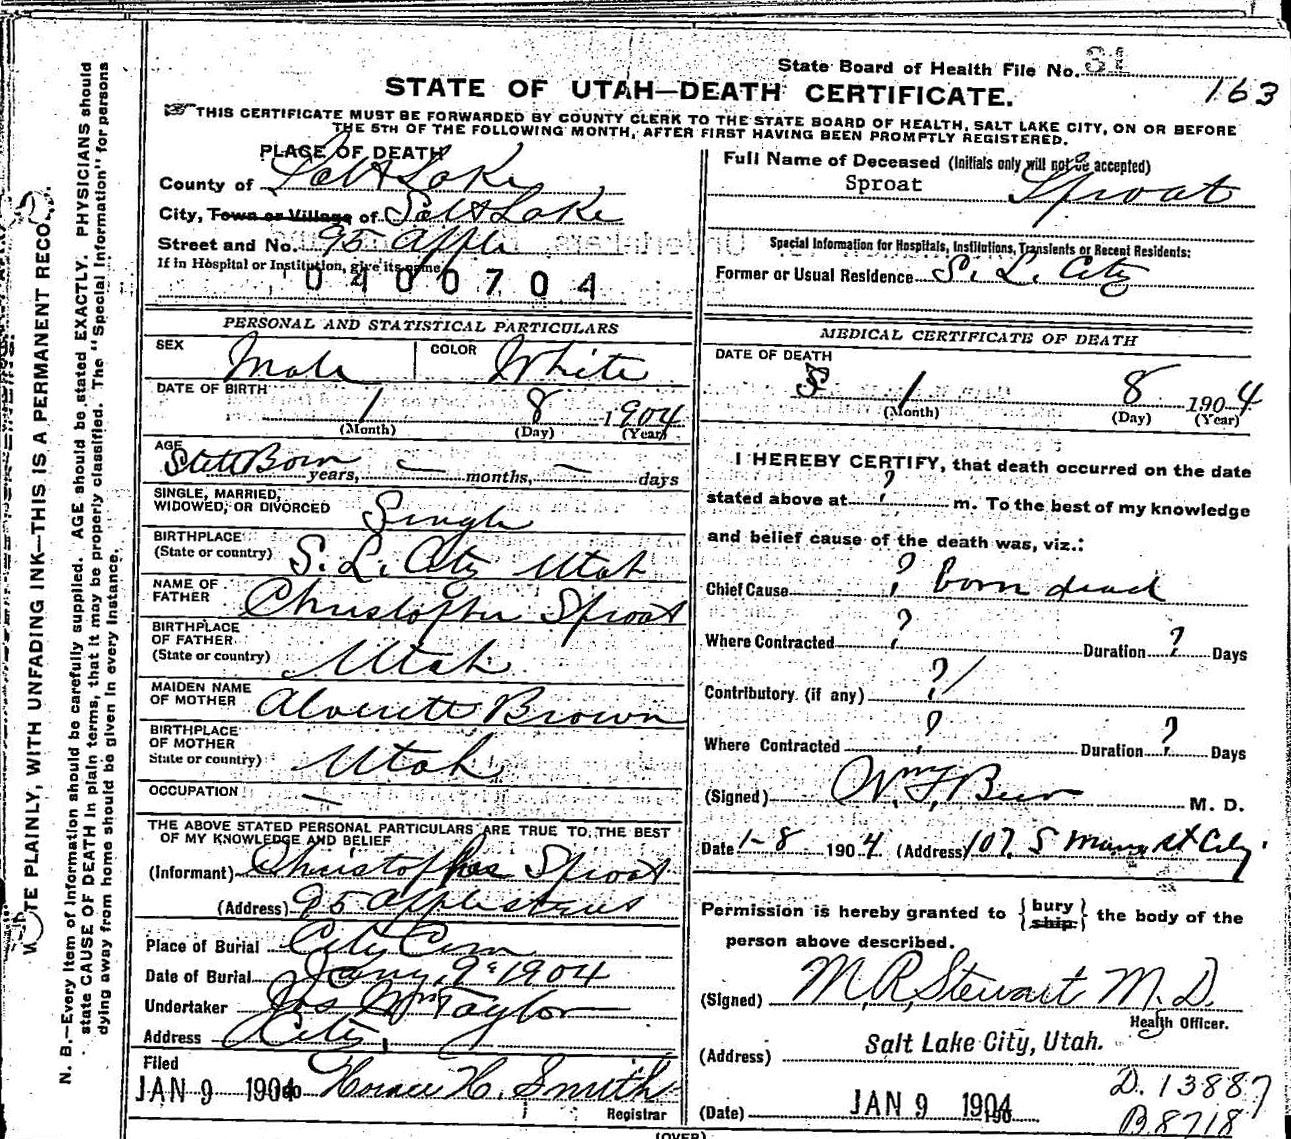 State Board of Health File No. 81
163
STATE OF UTAH—DEATH CERTIFICATE.
THIS CERTIFICATE MUST BE FORWARDED BY COUNTY CLERK TO THE STATE BOARD OF HEALTH, SALT LAKE CITY, ON OR BEFORE
THE 5TH OF THE FOLLOWING MONTH, AFTER FIRST HAVING BEEN PROMPTLY REGISTERED.
PLACE OF DEATH
County of Salt Lake
City, Town or Village of Salt Lake
Street and No. 95 Apple
If in Hospital or Institution, give its name
0400704
Full Name of Deceased (Initials only will not be accepted)
Sproat Sproat
Special Information for Hospitals, Institutions, Transients or Recent Residents:
Former or Usual Residence S. L. City
PERSONAL AND STATISTICAL PARTICULARS
SEX Male COLOR White
DATE OF BIRTH 1 8 1904
(Month) (Day) (Year)
AGE
Still Born years, — months, — days
SINGLE, MARRIED,
WIDOWED, OR DIVORCED Single
BIRTHPLACE
(State or country) S. L. City Utah
NAME OF
FATHER Christopher Sproat
BIRTHPLACE
OF FATHER
(State or country) Utah
MAIDEN NAME
OF MOTHER Alverett Brown
BIRTHPLACE
OF MOTHER
State or country) Utah
OCCUPATION —
THE ABOVE STATED PERSONAL PARTICULARS ARE TRUE TO THE BEST
OF MY KNOWLEDGE AND BELIEF
(Informant) Christopher Sproat
(Address) 95 Apple
Place of Burial City Cem
Date of Burial Jany 9th 1904
Undertaker Jos Wm Taylor
Address City
Filed
JAN 9 1904 Horace H. Smith
Registrar
MEDICAL CERTIFICATE OF DEATH
DATE OF DEATH
1 8 1904
(Month) (Day) (Year)
I HEREBY CERTIFY, that death occurred on the date
stated above at ? m. To the best of my knowledge
and belief cause of the death was, viz.:
Chief Cause ? born dead
Where Contracted ? Duration ? Days
Contributory (if any) ?
Where Contracted ? Duration ? Days
(Signed) Wm F. Beer M. D.
Date 1-8 1904 (Address) 107 S Main st City
Permission is hereby granted to { bury ship } the body of the
person above described.
(Signed) M. R. Stewart M. D.
Health Officer.
(Address) Salt Lake City, Utah.
(Date) JAN 9 1904
D. 13887
B. 8718
(OVER)
WRITE PLAINLY, WITH UNFADING INK—THIS IS A PERMANENT RECO
N. B.—Every item of information should be carefully supplied. AGE should be stated EXACTLY. PHYSICIANS should
state CAUSE OF DEATH in plain terms, that it may be properly classified. The "Special Information" for persons
dying away from home should be given in every instance.